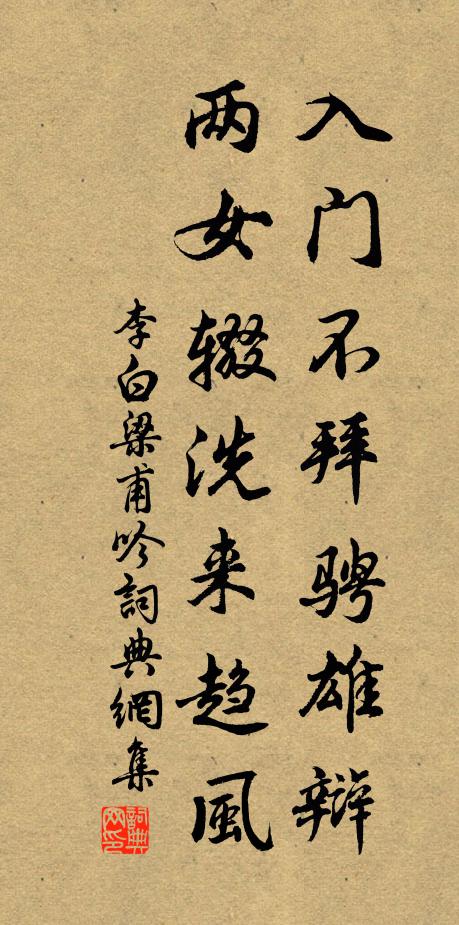 入门不拜骋雄辩
两女辍洗来趋風
李白梁甫吟詞典網集
詞典網印